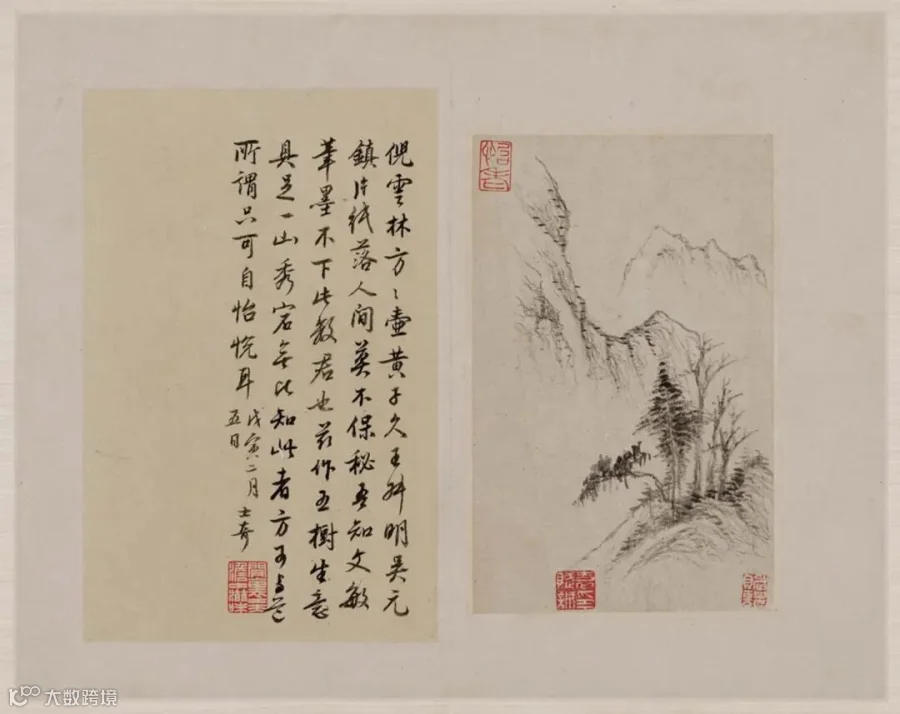 倪雲林方〻壺黄子久王叔明吳元
鎮片紙落人间莫不保秘吾知文敏
筆墨不下此数君也茲作五樹生意
具足一山秀宕無比知此者方可与
所謂只可自怡悦耳
戊寅二月
五日
士奇
大数跨境